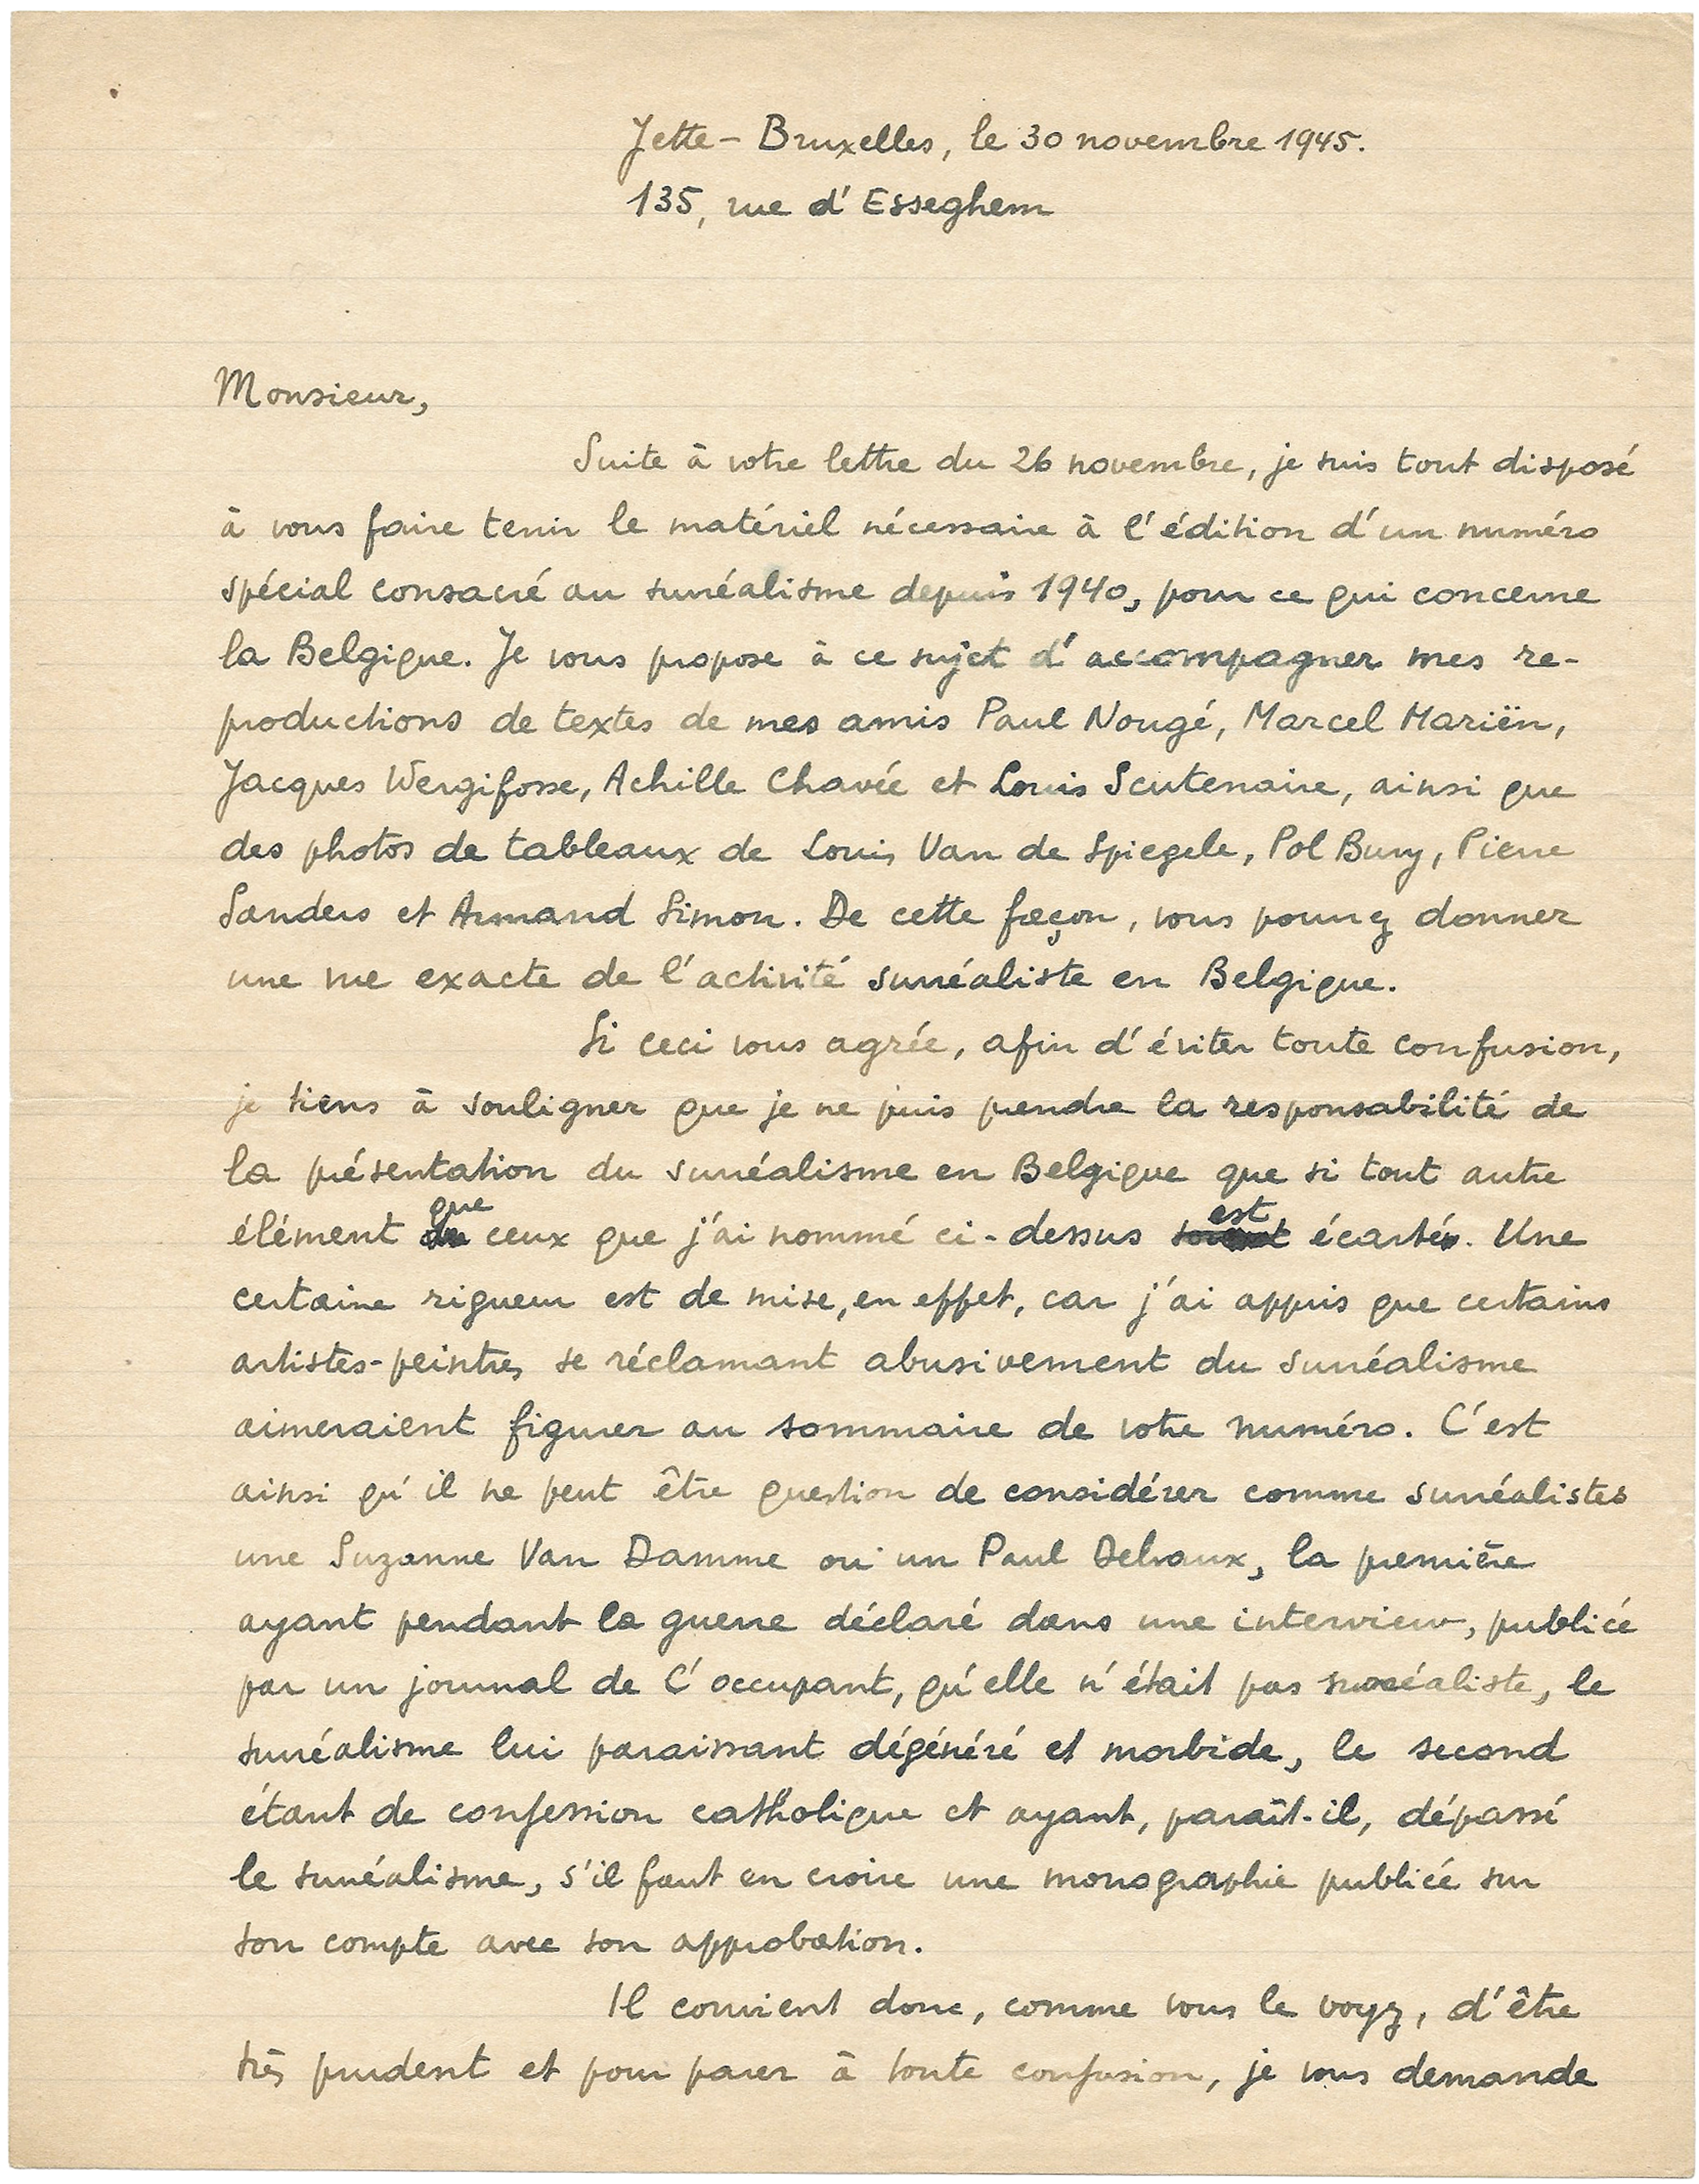 Jette - Bruxelles, le 30 novembre 1945.
135, rue d'Esseghem
Monsieur,
Suite à votre lettre du 26 novembre, je suis tout disposé
à vous faire tenir le matériel nécessaire à l'édition d'un numéro
spécial consacré au surréalisme depuis 1940, pour ce qui concerne
la Belgique. Je vous propose à ce sujet d'accompagner mes re-
productions de textes de mes amis Paul Nougé, Marcel Mariën,
Jacques Wergifosse, Achille Chavée et Louis Scutenaire, ainsi que
des photos de tableaux de Louis Van de Spiegele, Pol Bury, Pierre
Sanders et Armand Simon. De cette façon, vous pourrez donner
une vue exacte de l'activité surréaliste en Belgique.
Si ceci vous agrée, afin d'éviter toute confusion,
je tiens à souligner que je ne puis prendre la responsabilité de
la présentation du surréalisme en Belgique que si tout autre
élément que ceux que j'ai nommé ci-dessus est écarté. Une
certaine rigueur est de mise, en effet, car j'ai appris que certains
artistes-peintres se réclamant abusivement du surréalisme
aimeraient figurer au sommaire de votre numéro. C'est
ainsi qu'il ne peut être question de considérer comme surréalistes
une Suzanne Van Damme ou un Paul Delvaux, la première
ayant pendant la guerre déclaré dans une interview, publiée
par un journal de l'occupant, qu'elle n'était pas surréaliste, le
surréalisme lui paraissant dégénéré et morbide, le second
étant de confession catholique et ayant, paraît-il, dépassé
le surréalisme, s'il faut en croire une monographie publiée sur
son compte avec son approbation.
Il convient donc, comme vous le voyez, d'être
très prudent et pour parer à toute confusion, je vous demande